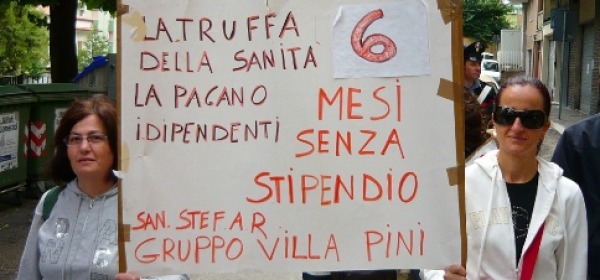 LA TRUFFA
DELLA SANITÀ
LA PAGANO
I DIPENDENTI
6
MESI
SENZA
STIPENDIO
SAN. STEFAR
GRUPPO VILLA PINI